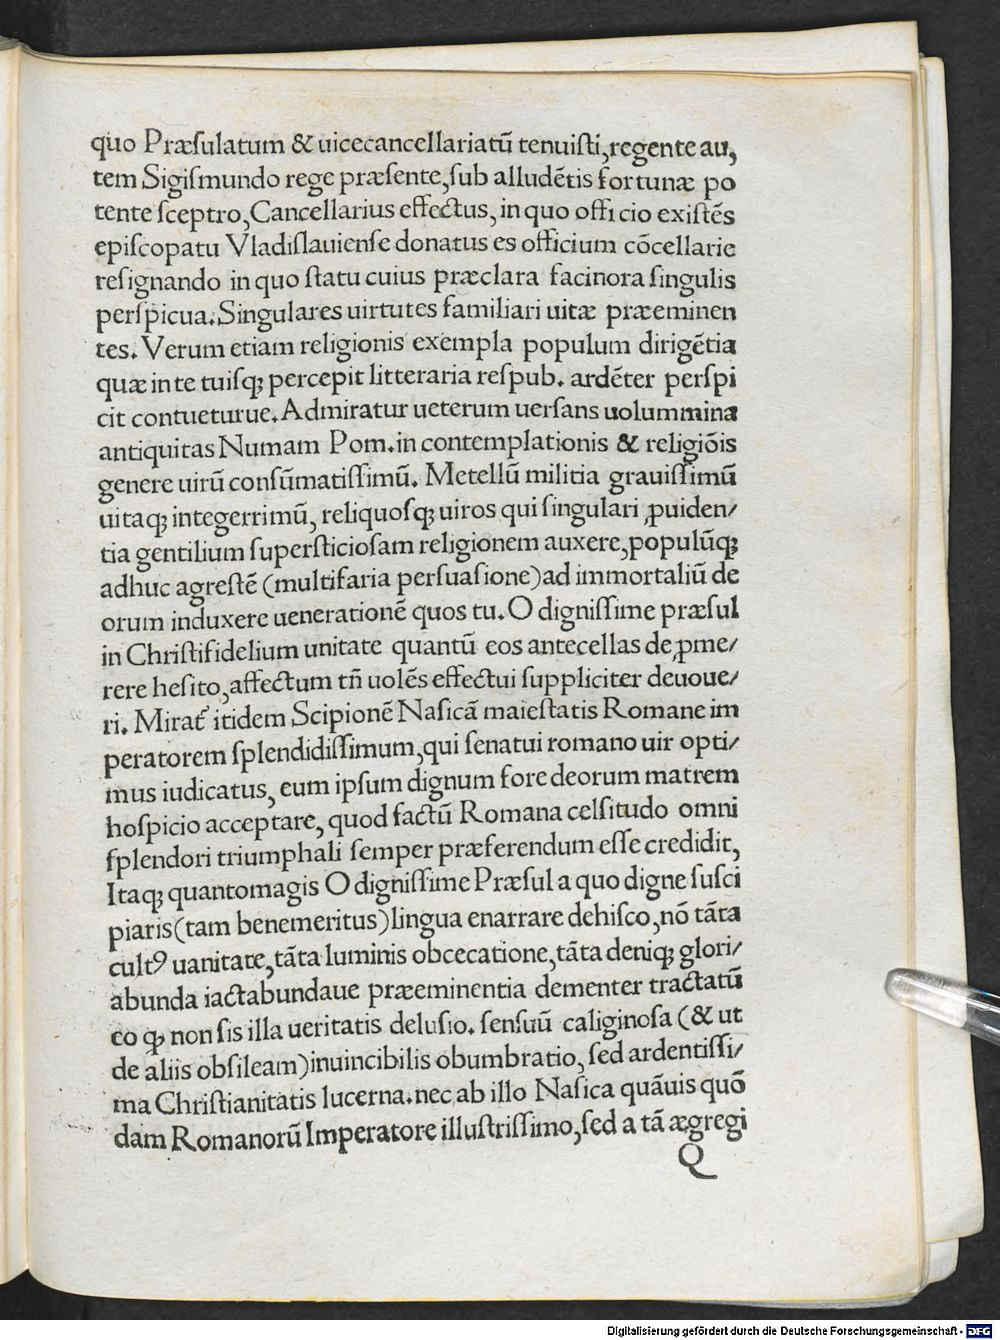 quo Præſulatum & uicecancellariatū tenuiſti,regente au,
tem Sigiſmundo rege præſente,ſub alludētis fortunæ po
tente ſceptro,Cancellarius effectus,in quo officio exiſtēs
epiſcopatu Vladiſlauienſe donatus es officium cōcellarie
reſignando in quo ſtatu cuius præclara facinora ſingulis
perſpicua.Singulares uirtutes familiari uitæ præeminen
tes. Verum etiam religionis exempla populum dirigētia
quæ in te tuiſqꝫ percepit litteraria reſpub. ardēter perſpi
cit contueturue.Admiratur ueterum uerſans uolummina
antiquitas Numam Pom.in contemplationis & religiōis
genere uirū conſūmatiſſimū. Metellū militia grauiſſimū
uitaqꝫ integerrimū, reliquoſqꝫ uiros qui ſingulari ꝓuiden/
tia gentilium ſuperſticioſam religionem auxere,populūqꝫ
adhuc agreſtē (multifaria perſuaſione)ad immortaliū de
orum induxere uenerationē quos tu.O digniſſime præſul
in Chriſtifidelium unitate quantū eos antecellas de ꝓme/
rere heſito,affectum tn̄ uolēs effectui ſuppliciter deuoue/
ri. Miratᷣ itidem Scipionē Naſicā maieſtatis Romane im
peratorem ſplendidiſſimum,qui ſenatui romano uir opti/
mus iudicatus, eum ipſum dignum fore deorum matrem
hoſpicio acceptare, quod factū Romana celſitudo omni
ſplendori triumphali ſemper præferendum eſſe credidit,
Itaqꝫ quantomagis O digniſſime Præſul a quo digne ſuſci
piaris(tam benemeritus)lingua enarrare dehiſco,nō tāta
cultꝰ uanitate,tāta luminis obcecatione,tāta deniqꝫ glori/
abunda iactabundaue præeminentia dementer tractatū
eo ꝙ non ſis illa ueritatis deluſio. ſenſuū caliginoſa (& ut
de aliis obſileam)inuincibilis obumbratio, ſed ardentiſſi/
ma Chriſtianitatis lucerna.nec ab illo Naſica quāuis quō
dam Romanorū Imperatore illuſtriſſimo,ſed a tā ægregi
Q
Digitalisierung gefördert durch die Deutsche Forschungsgemeinschaft - DFG